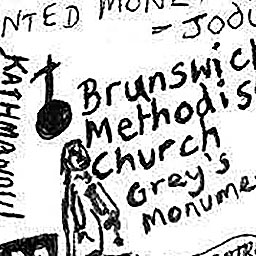 NTED MONE
= JODU
KATHMANDU
Brunswick
Methodis
Church
Grey's
Monume